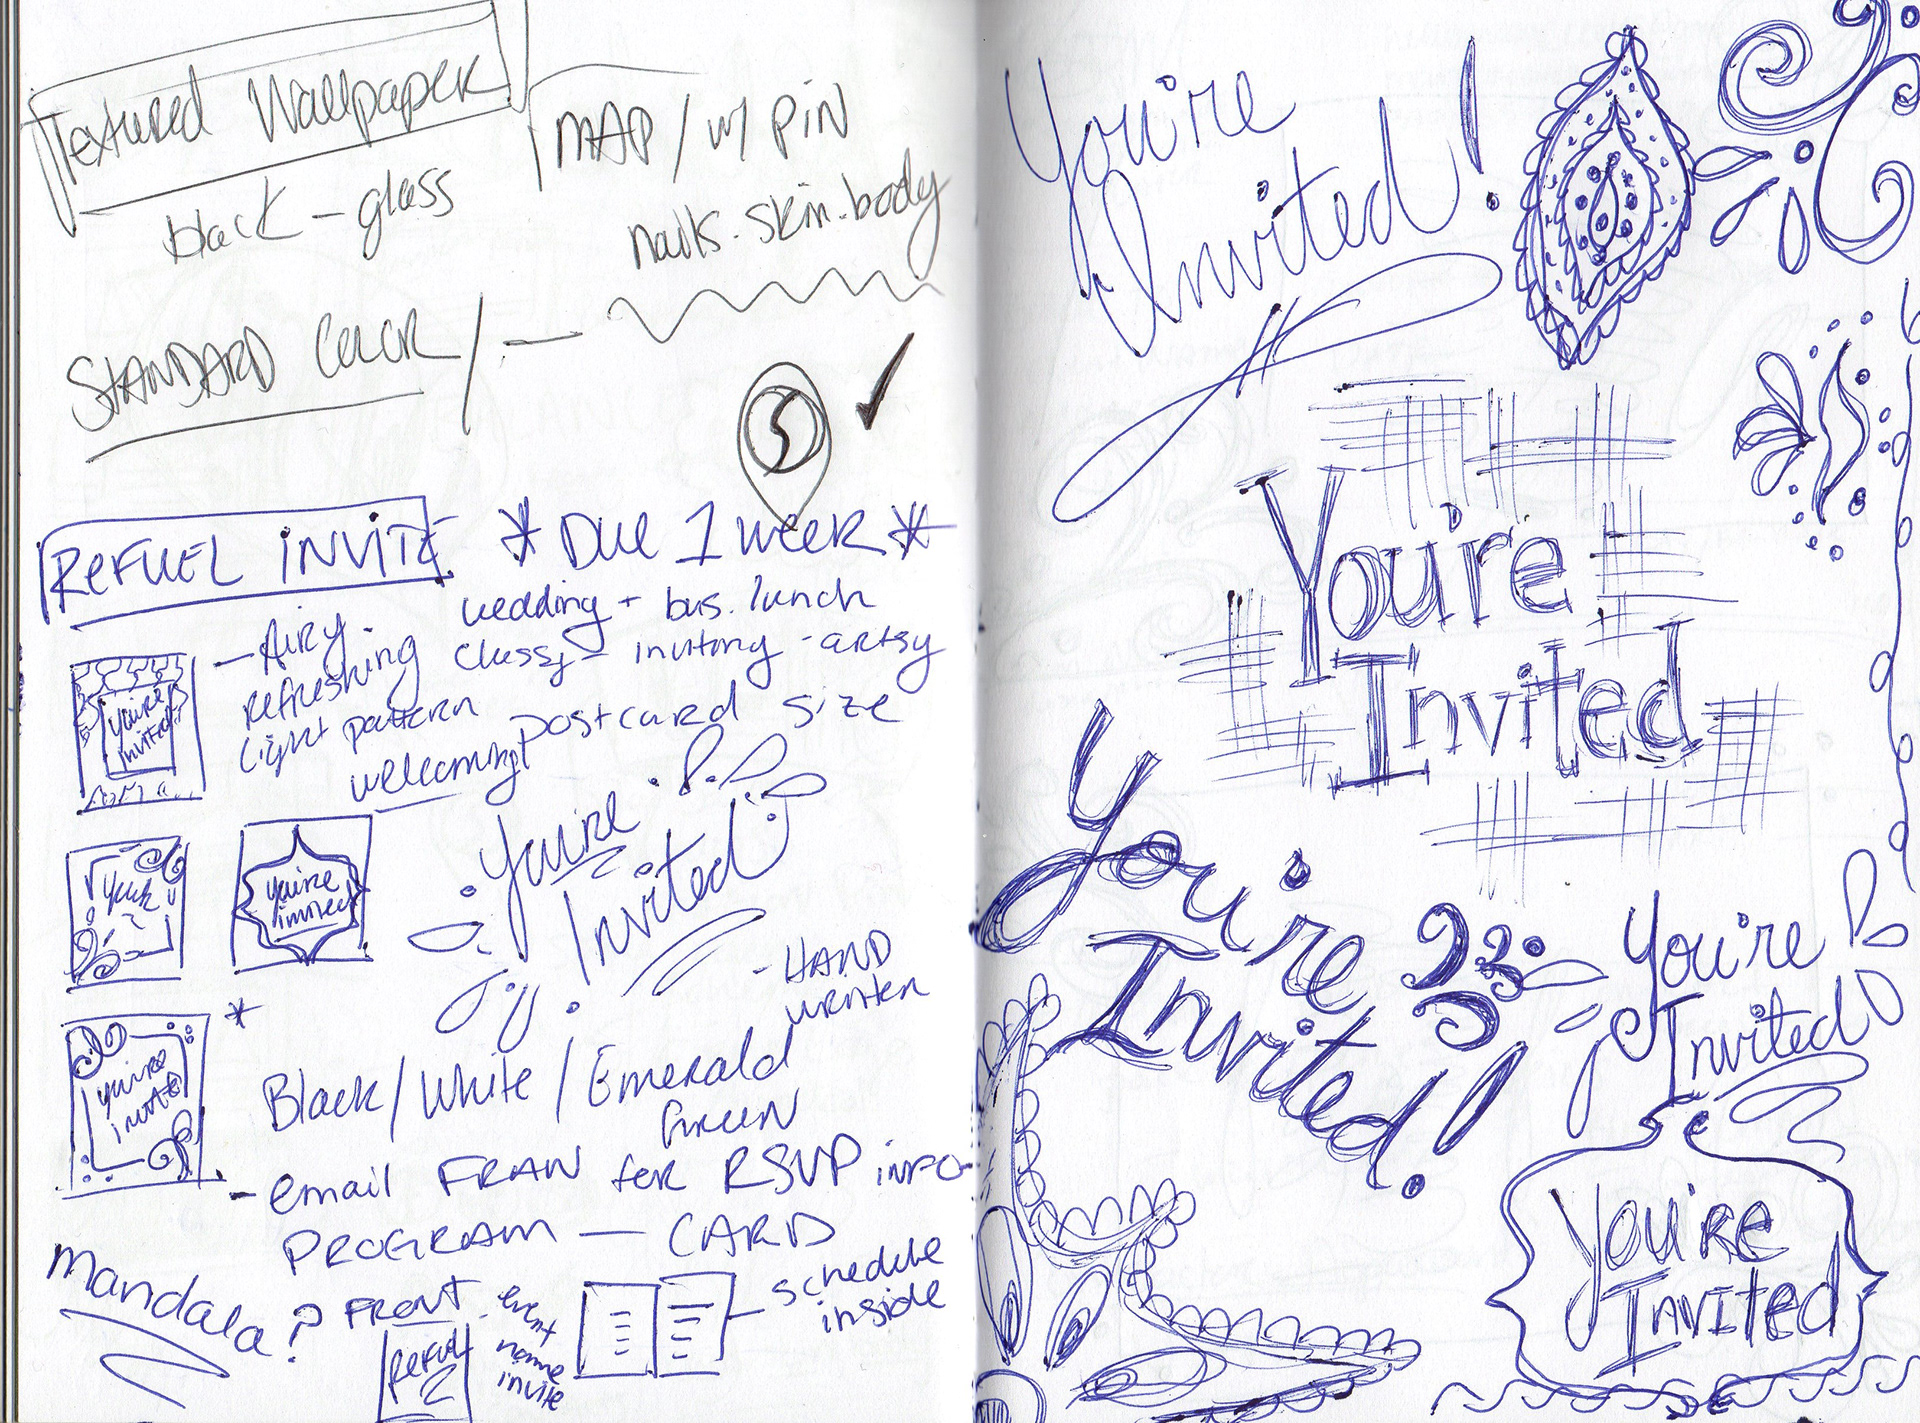 Textured Wallpaper
black - glass
MAP / w/ PIN
nails. skin. body
STANDARD COLOR / —
S
REFUEL INVITE * DUE 1 WEEK *
wedding + bus. lunch
- Airy - classy - inviting - artsy
refreshing
light pattern postcard size
welcoming!
you're
invited
You're
Invited
you're
invited
- HAND
written
*
you're
invited
Black / White / Emerald
Green
- email FRAN for RSVP INFO-
PROGRAM — CARD
Mandala?
FRONT - event
name
invite
REFUEL
2
schedule
inside
You're
Invited!
You're
Invited
You're
Invited!
You're
Invited
You're
Invited